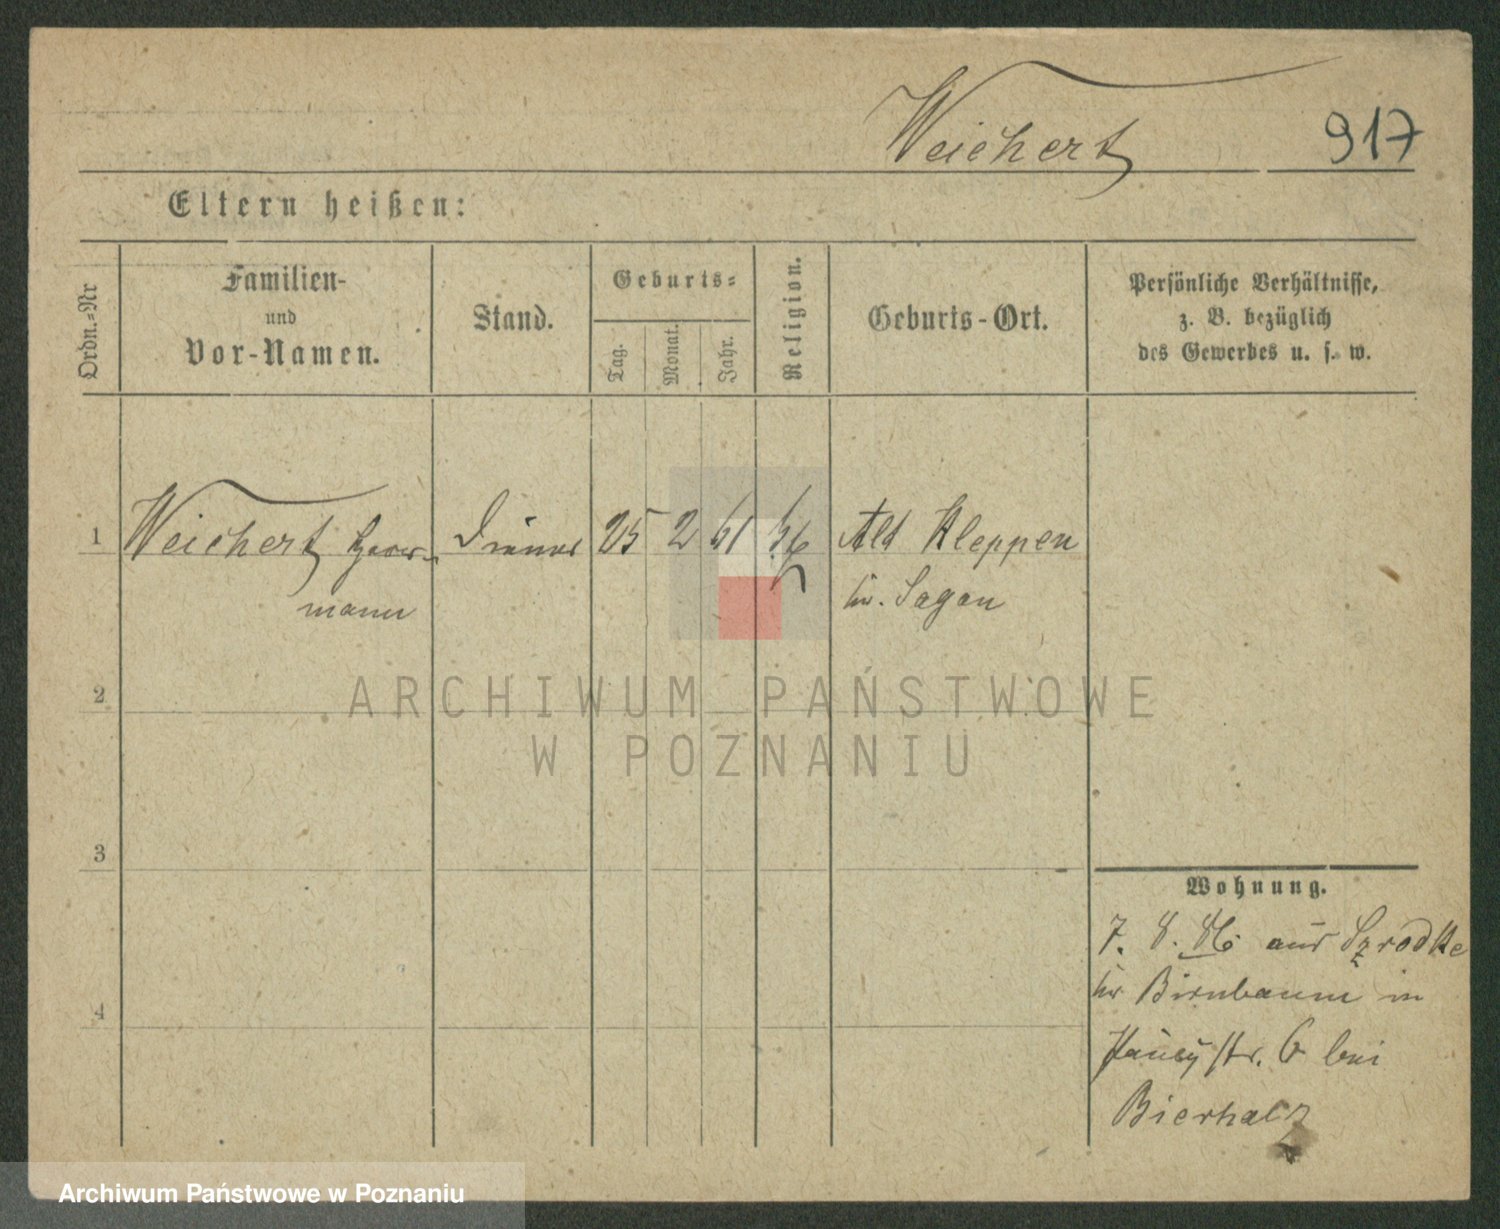 Weichert 917
Eltern heißen:
Ordn.=Nr
Familien-
und
Vor-Namen.
Stand.
Geburts=
Tag.
Monat.
Jahr.
Religion.
Geburts-Ort.
Persönliche Verhältnisse,
z. B. bezüglich
des Gewerbes u. s. w.
1 Weichert Herr- Diener 25 2 61 Alt Kleppen
mann Kr. Sagan
2
ARCHIWUM PAŃSTWOWE
W POZNANIU
3
Wohnung.
7. 8. 86 aus Szrodke
Kr Birnbaum in
str. 6 bei
4
Bierhalz
Archiwum Państwowe w Poznaniu